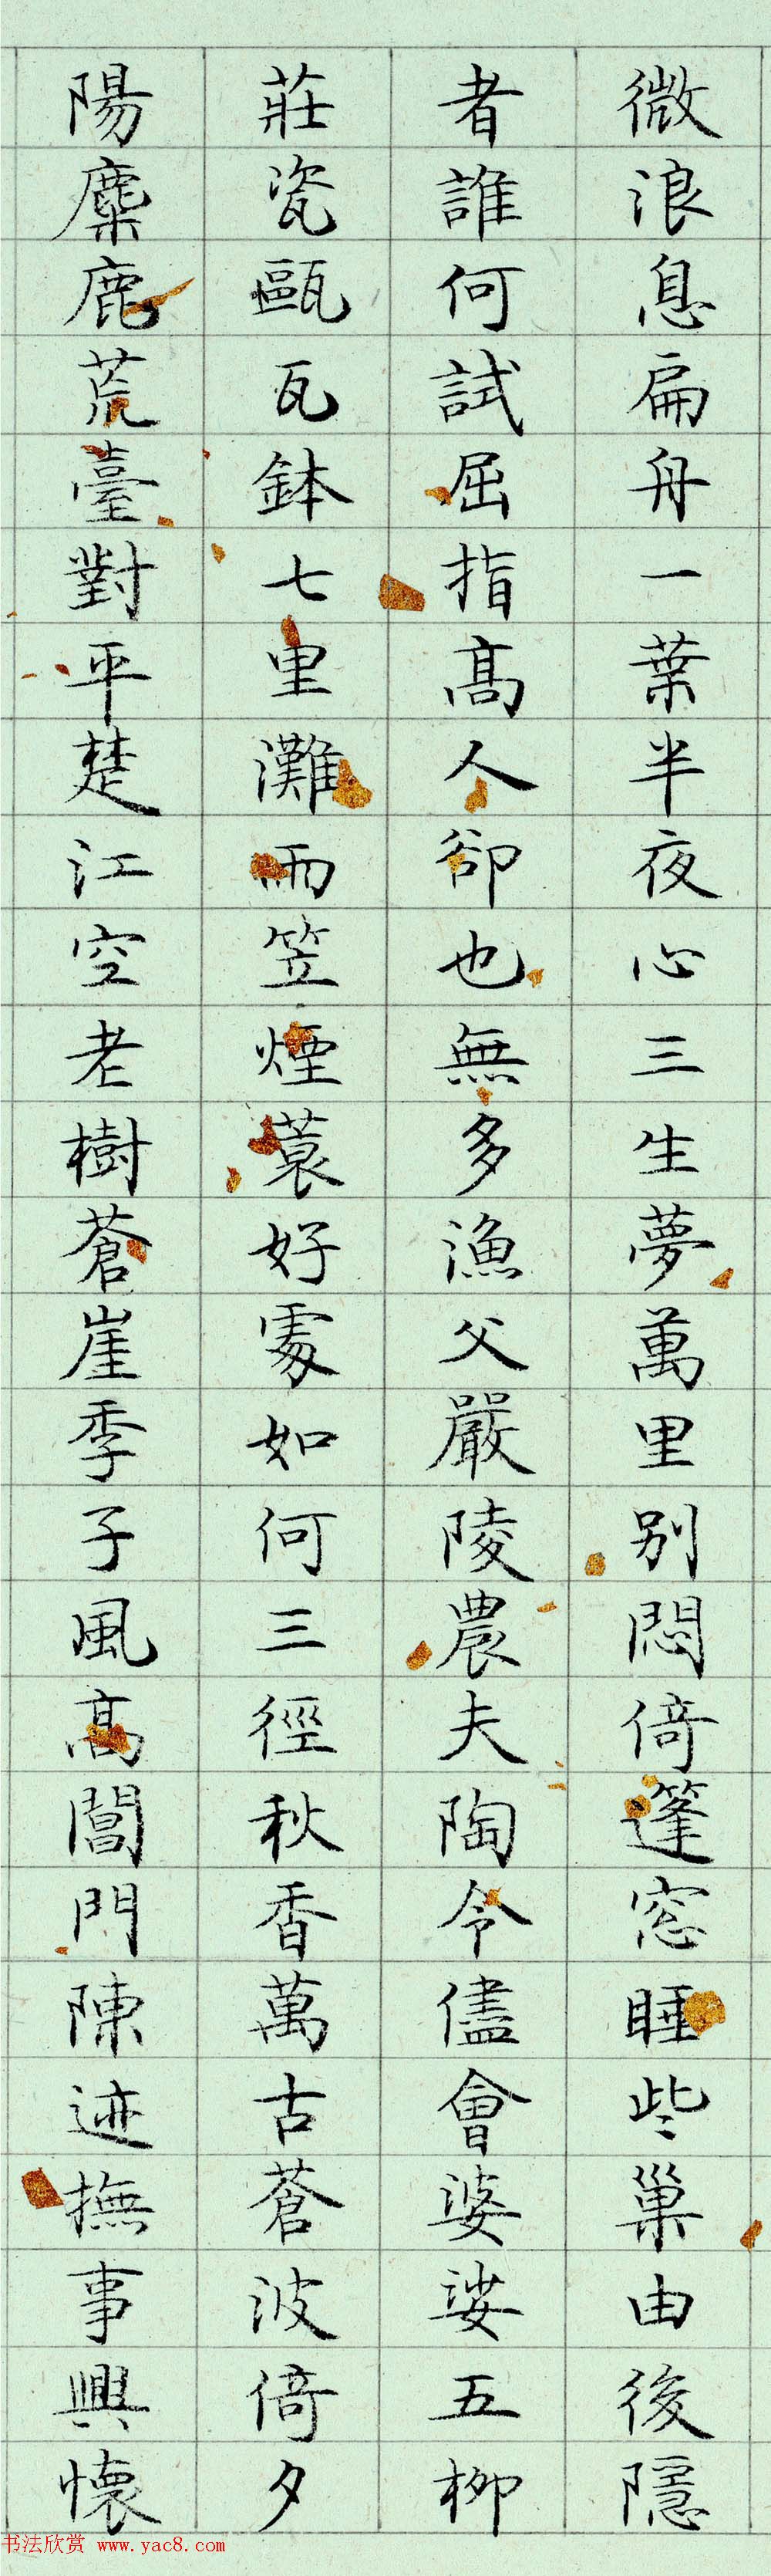 微浪息扁舟一葉半夜心三生夢萬里別悶倚篷窓睡些巢由後隱
者誰何試屈指高人卻也無多漁父嚴陵農夫陶令儘會婆娑五柳
莊瓷甌瓦鉢七里灘雨笠煙蓑好處如何三徑秋香萬古蒼波倚夕
陽麋鹿荒臺對平楚江空老樹蒼崖季子風高閶門陳迹撫事興懷
书法欣赏 www.yac8.com